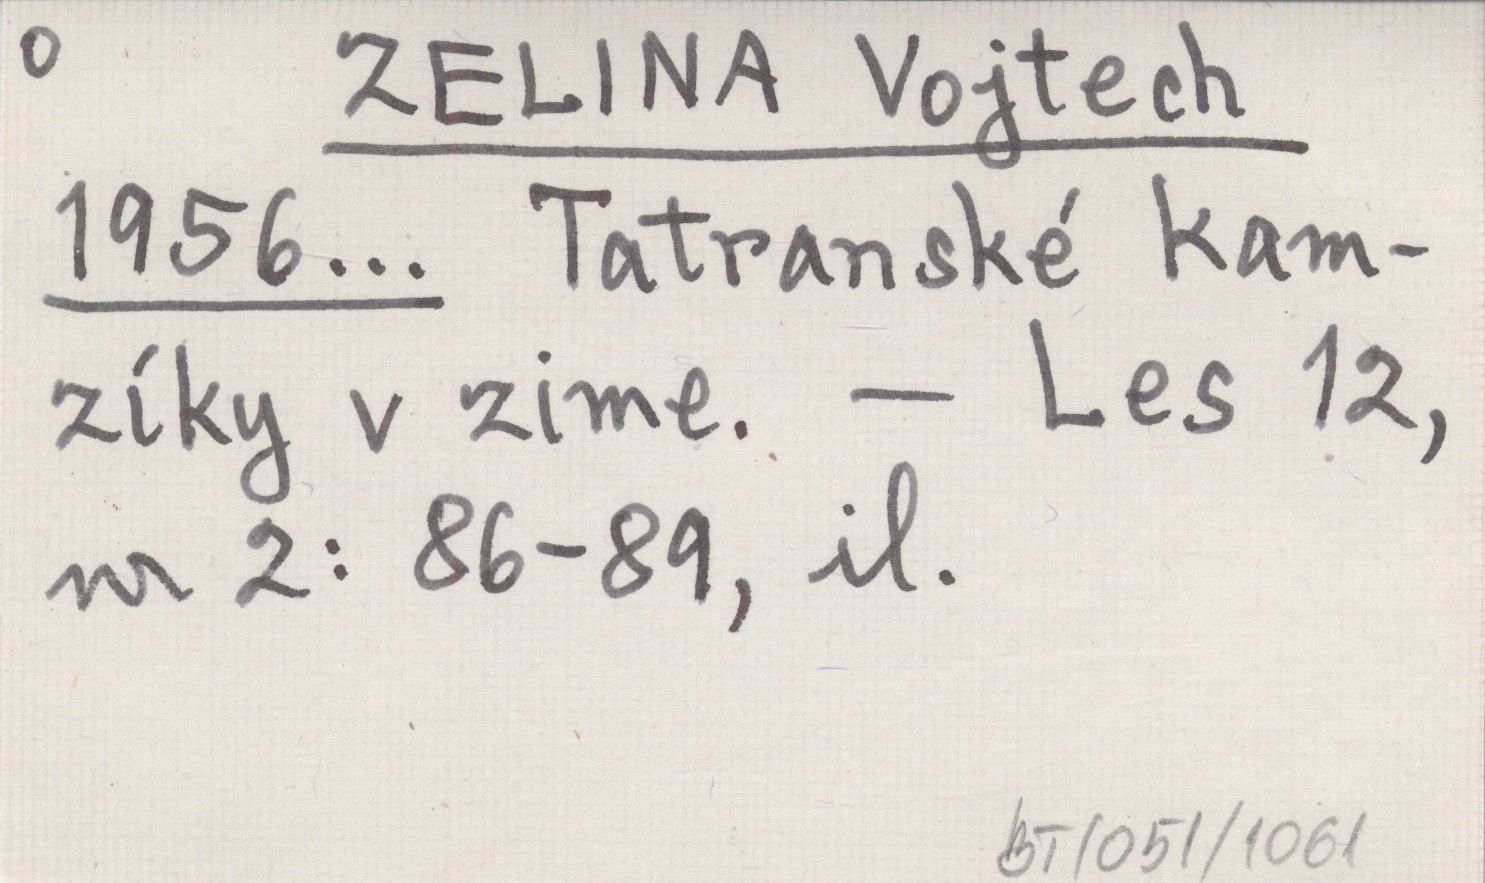 0 ZELINA Vojtech
1956... Tatranské kam-
zíky v zime. — Les 12,
nr 2: 86-89, il.
BT/051/1061